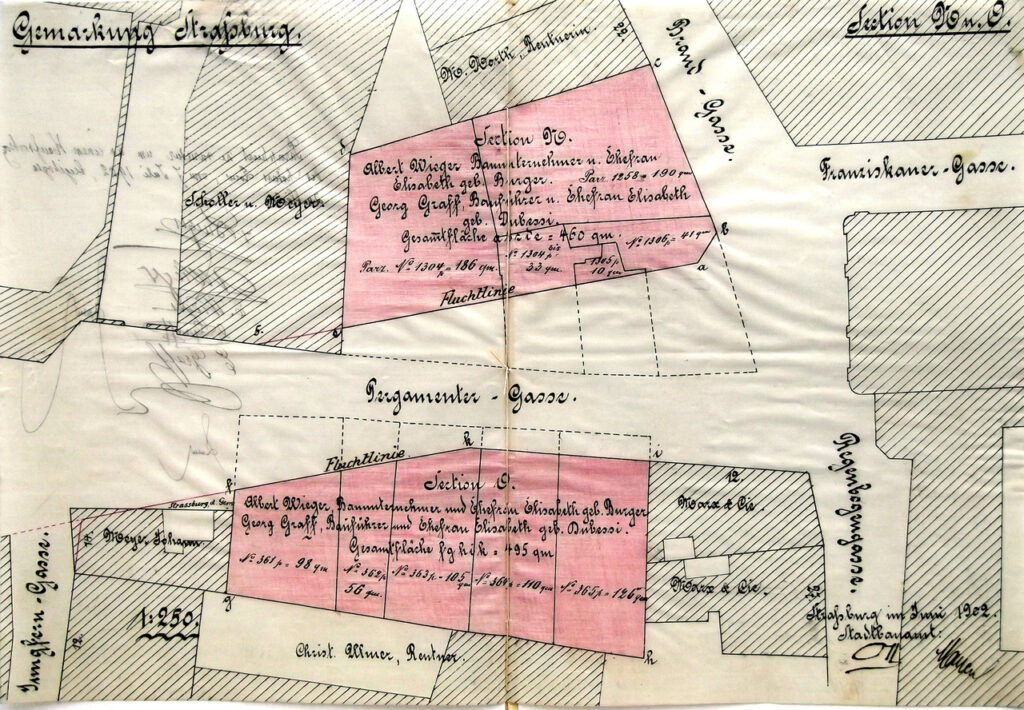 Gemarkung Straßburg.
Section N u. O.
Brand - Gasse.
22.
Franziskaner-Gasse.
Scholler u. Meyer
Section N.
Albert Wieger Bauunternehmer u. Ehefrau
Elisabeth geb. Burger. Parz. 1258 = 190 qm
Georg Graff, Bauführer u. Ehefrau Elisabeth
geb. Dubessi.
Gesamtfläche = 460 qm.
No 1306p = 41 qm
Parz. No 1304p = 186 qm.
No 1304p bis
33 qm.
1305p
10 qm
Fluchtlinie
c
b
a
Pergamenter - Gasse.
Fluchtlinie
k
i
Section O.
Albert Wieger, Bauunternehmer und Ehefrau Elisabeth geb. Burger
Georg Graff, Bauführer und Ehefrau Elisabeth geb. Dubessi.
Gesamtfläche f g h i k = 495 qm
No 361p = 98 qm
No 362p
56 qm.
No 363p = 105 qm
No 364p = 110 qm
No 365p = 126 qm
g
h
12.
Marx & Cie.
Marx & Cie.
Regenbogengasse.
Meyer Johann
Jungfern-Gasse.
12.
1:250.
Christ. Ulmer, Rentner.
Straßburg im Juni 1902.
Stadtbauamt: